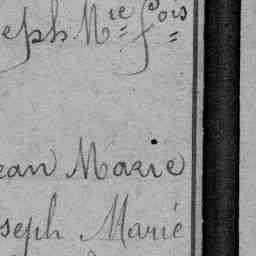 eph Mie fois
ean Marie
seph Marie